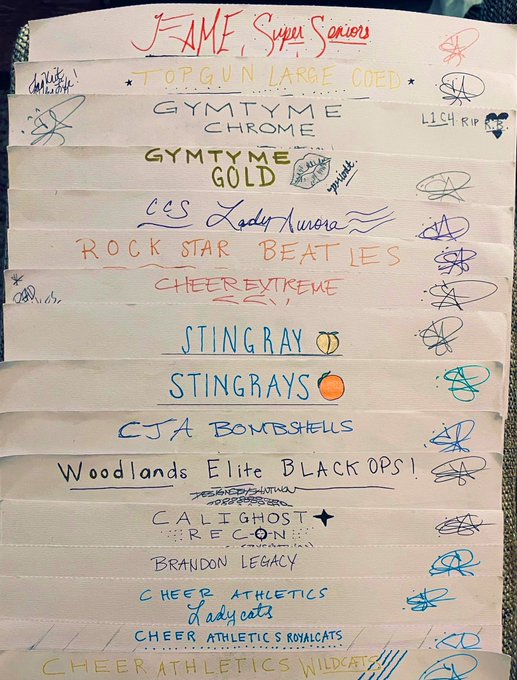 FAME, Super Seniors
TOPGUN LARGE COED
GYMTYME
CHROME
L1C4 RIP R.B.
GYMTYME
GOLD
periodt.
CCS Lady Aurora
ROCK STAR BEATLES
CHEER EXTREME
STINGRAY
STINGRAYS
CJA BOMBSHELLS
Woodlands Elite BLACK OPS!
CALI GHOST
RECON
BRANDON LEGACY
CHEER ATHLETICS
Ladycats
CHEER ATHLETICS ROYALCATS
CHEER ATHLETICS WILDCATS